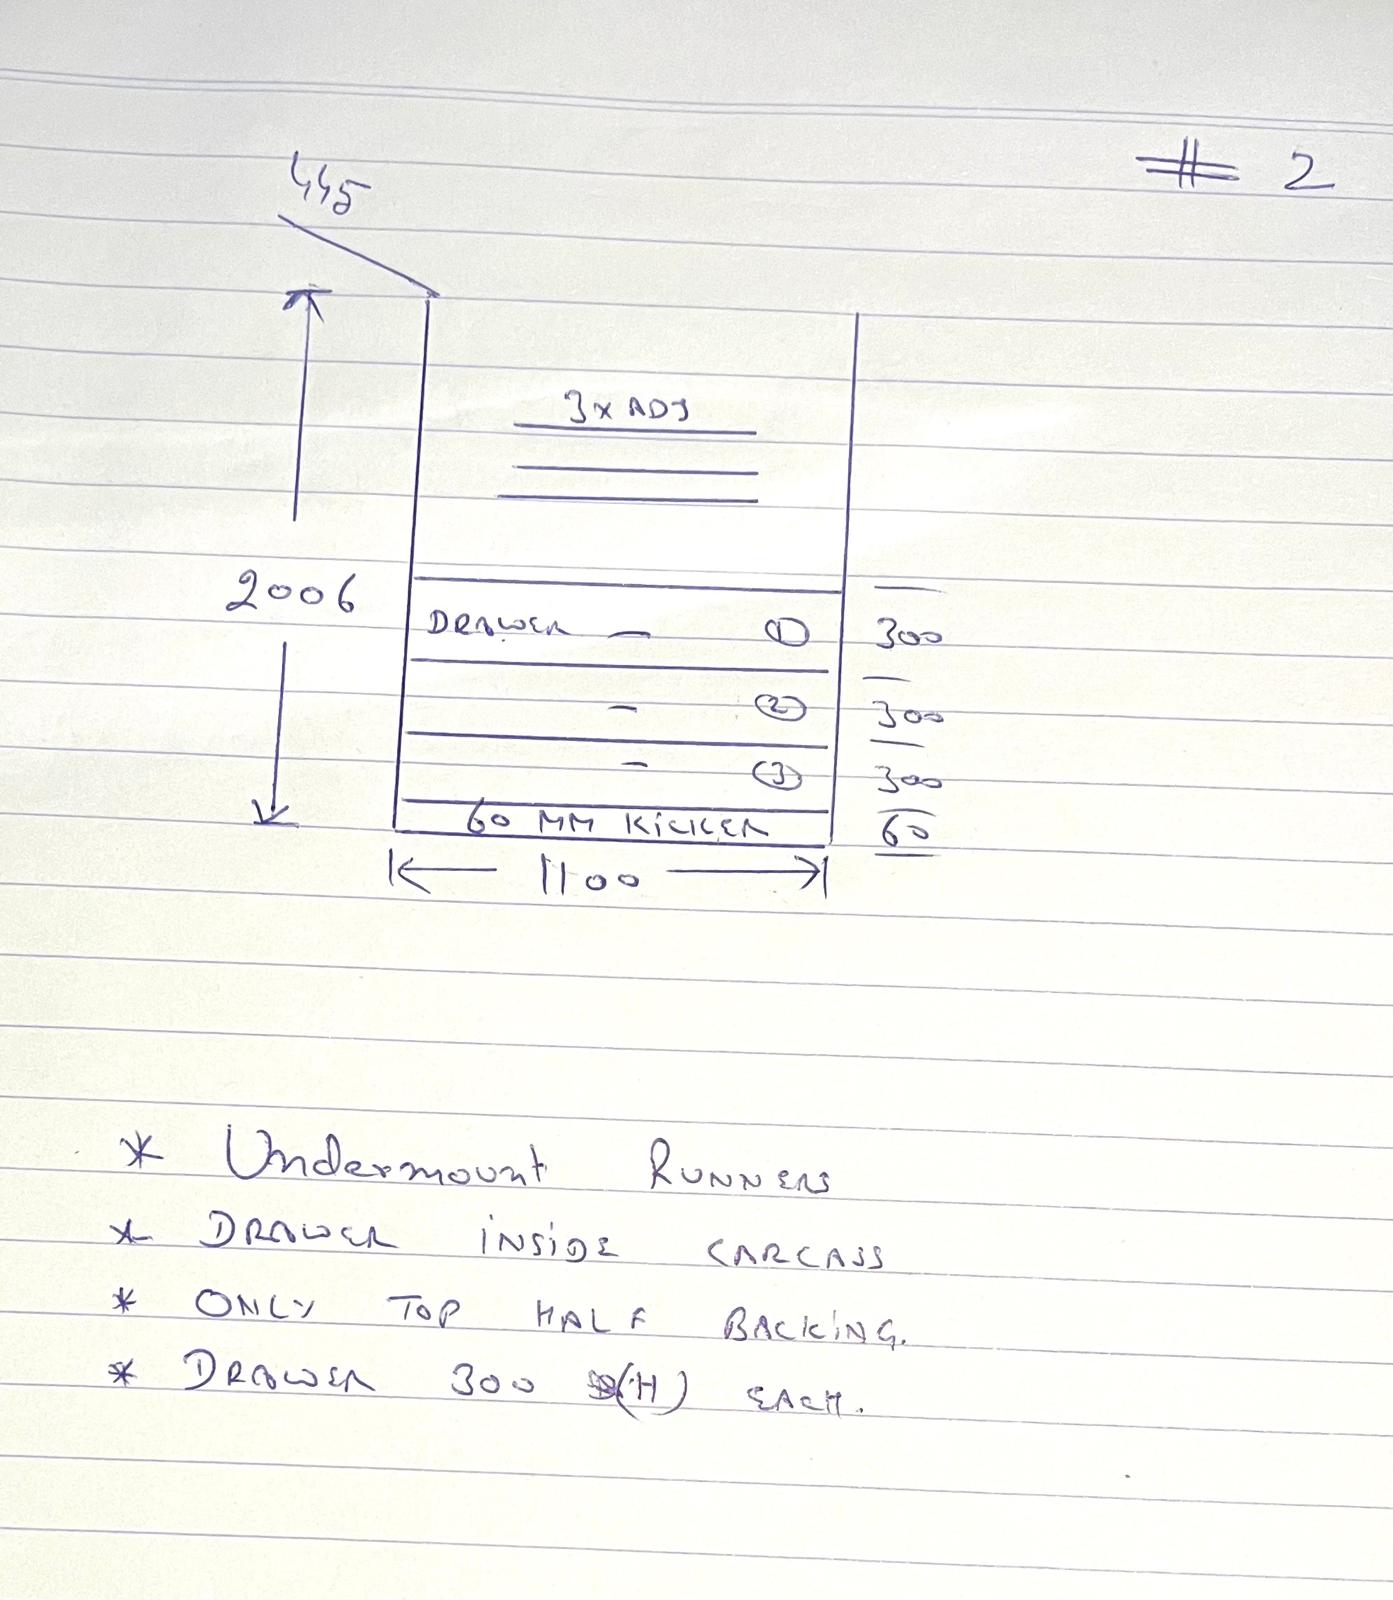 # 2
445
3x ADJ
2006
DRAWER — ① 300
- ② 300
- ③ 300
60 MM KICKER 60
1100
* Undermount RUNNERS
* DRAWER INSIDE CARCASS
* ONLY TOP HALF BACKING.
* DRAWER 300 (H) EACH.